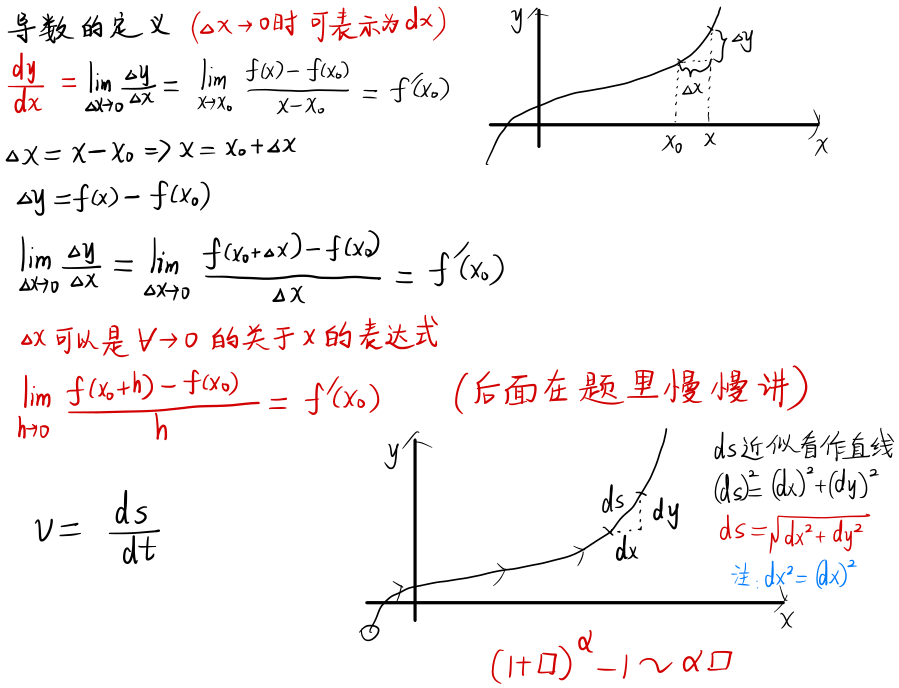 导数的定义 (△x→0时 可表示为dx)
dy/dx = lim_{△x→0} △y/△x = lim_{x→x₀} (f(x)-f(x₀))/(x-x₀) = f'(x₀)
△x = x-x₀ => x = x₀+△x
△y = f(x)-f(x₀)
lim_{△x→0} △y/△x = lim_{△x→0} (f(x₀+△x)-f(x₀))/△x = f'(x₀)
△x 可以是 ∀→0 的关于x的表达式
lim_{h→0} (f(x₀+h)-f(x₀))/h = f'(x₀) (后面在题里慢慢讲)
v = ds/dt
y
△y
△x
x₀ x x
y
ds dy
dx
x
ds近似看作直线
(ds)² = (dx)²+(dy)²
ds = √(dx²+dy²)
注: dx² = (dx)²
(1+□)^α -1 ~ α□